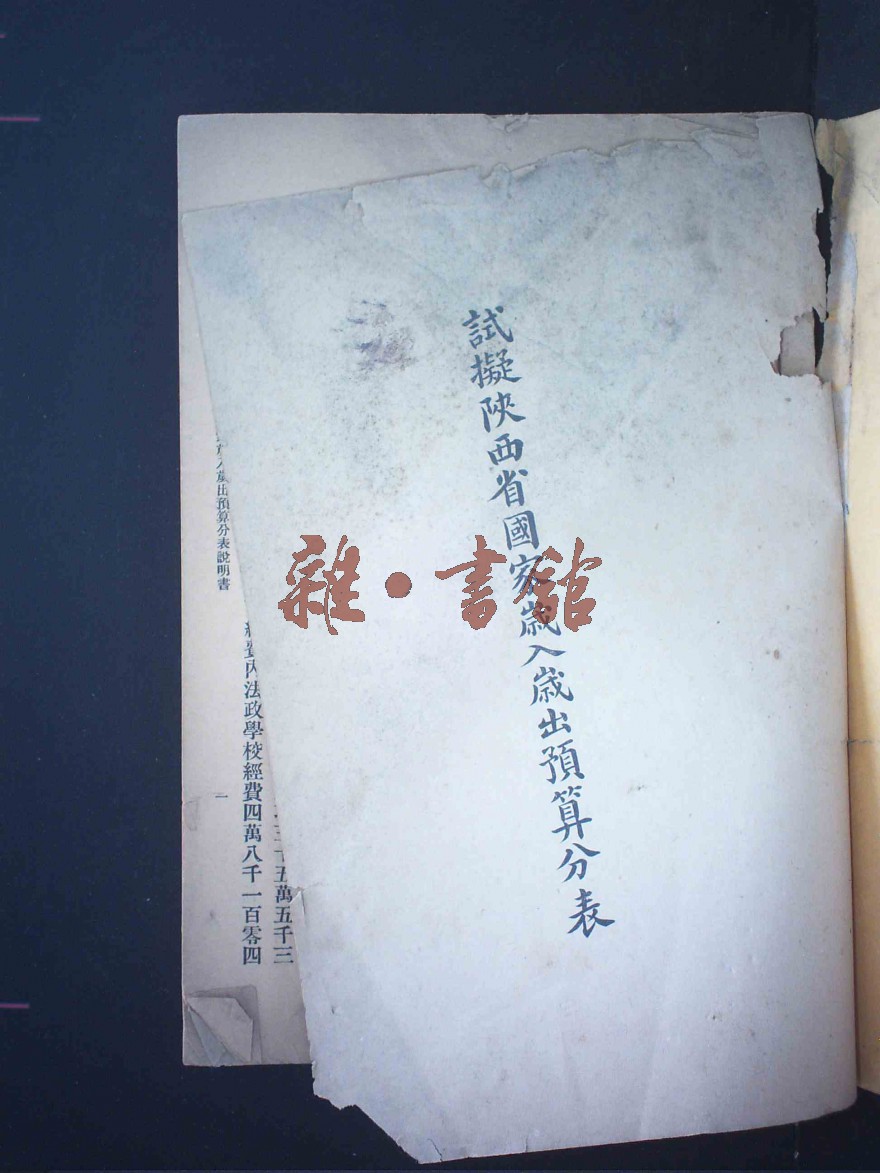 試擬陝西省國家歲入歲出預算分表
雜·書館
五萬五千三
法政學校經費四萬八千一百零四
出預算分表說明書
一